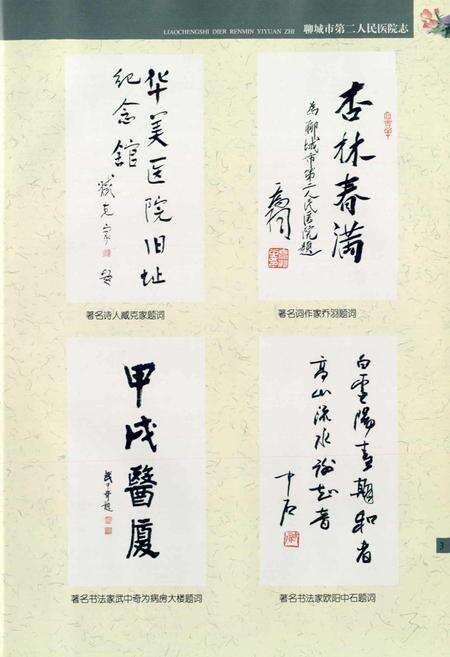 LIAOCHENGSHI DIER RENMIN YIYUAN ZHI
聊城市第二人民医院志
华美医院旧址
纪念馆
臧克家
著名诗人臧克家题词
杏林春满
为聊城市第二人民医院题
乔羽
著名词作家乔羽题词
甲戌醫厦
武中奇题
著名书法家武中奇为病房大楼题词
白雪陽春期和者
高山流水谢知音
中石
著名书法家欧阳中石题词
3